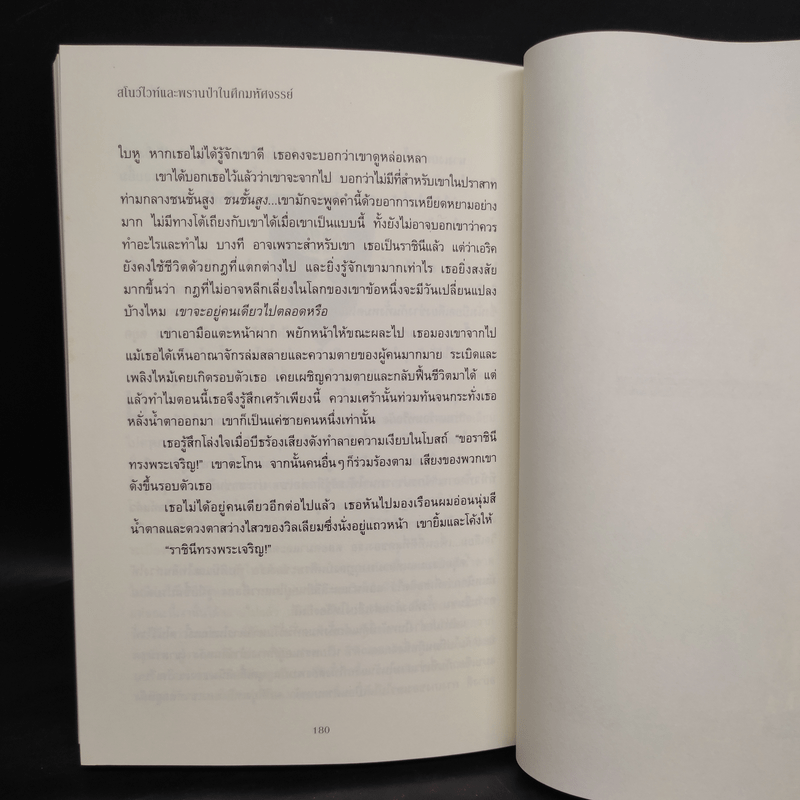 สโนว์ไวท์และพรานป่าในศึกมหัศจรรย์
ใบหู หากเธอไม่ได้รู้จักเขาดี เธอคงจะบอกว่าเขาดูหล่อเหลา
เขาได้บอกเธอไว้แล้วว่าเขาจะจากไป บอกว่าไม่มีที่สำหรับเขาในปราสาท
ท่ามกลางชนชั้นสูง ชนชั้นสูง...เขามักจะพูดคำนี้ด้วยอาการเหยียดหยามอย่าง
มาก ไม่มีทางโต้เถียงกับเขาได้เมื่อเขาเป็นแบบนี้ ทั้งยังไม่อาจบอกเขาว่าควร
ทำอะไรและทำไม บางที อาจเพราะสำหรับเขา เธอเป็นราชินีแล้ว แต่ว่าเอริค
ยังคงใช้ชีวิตด้วยกฎที่แตกต่างไป และยิ่งรู้จักเขามากเท่าไร เธอยิ่งสงสัย
มากขึ้นว่า กฎที่ไม่อาจหลีกเลี่ยงในโลกของเขาข้อหนึ่งจะมีวันเปลี่ยนแปลง
บ้างไหม เขาจะอยู่คนเดียวไปตลอดหรือ
เขาเอามือแตะหน้าผาก พยักหน้าให้ขณะผละไป เธอมองเขาจากไป
แม้เธอได้เห็นอาณาจักรล่มสลายและความตายของผู้คนมากมาย ระเบิดและ
เพลิงไหม้เคยเกิดรอบตัวเธอ เคยเผชิญความตายและกลับฟื้นชีวิตมาได้ แต่
แล้วทำไมตอนนี้เธอจึงรู้สึกเศร้าเพียงนี้ ความเศร้านั้นท่วมท้นจนกระทั่งเธอ
หลั่งน้ำตาออกมา เขาก็เป็นแค่ชายคนหนึ่งเท่านั้น
เธอรู้สึกโล่งใจเมื่อบีธร้องเสียงดังทำลายความเงียบในโบสถ์ “ขอราชินี
ทรงพระเจริญ!” เขาตะโกน จากนั้นคนอื่นๆ ก็ร่วมร้องตาม เสียงของพวกเขา
ดังขึ้นรอบตัวเธอ
เธอไม่ได้อยู่คนเดียวอีกต่อไปแล้ว เธอหันไปมองเรือนผมอ่อนนุ่มสี
น้ำตาลและดวงตาสว่างไสวของวิลเลียมซึ่งนั่งอยู่แถวหน้า เขายิ้มและโค้งให้
“ราชินีทรงพระเจริญ!”
180